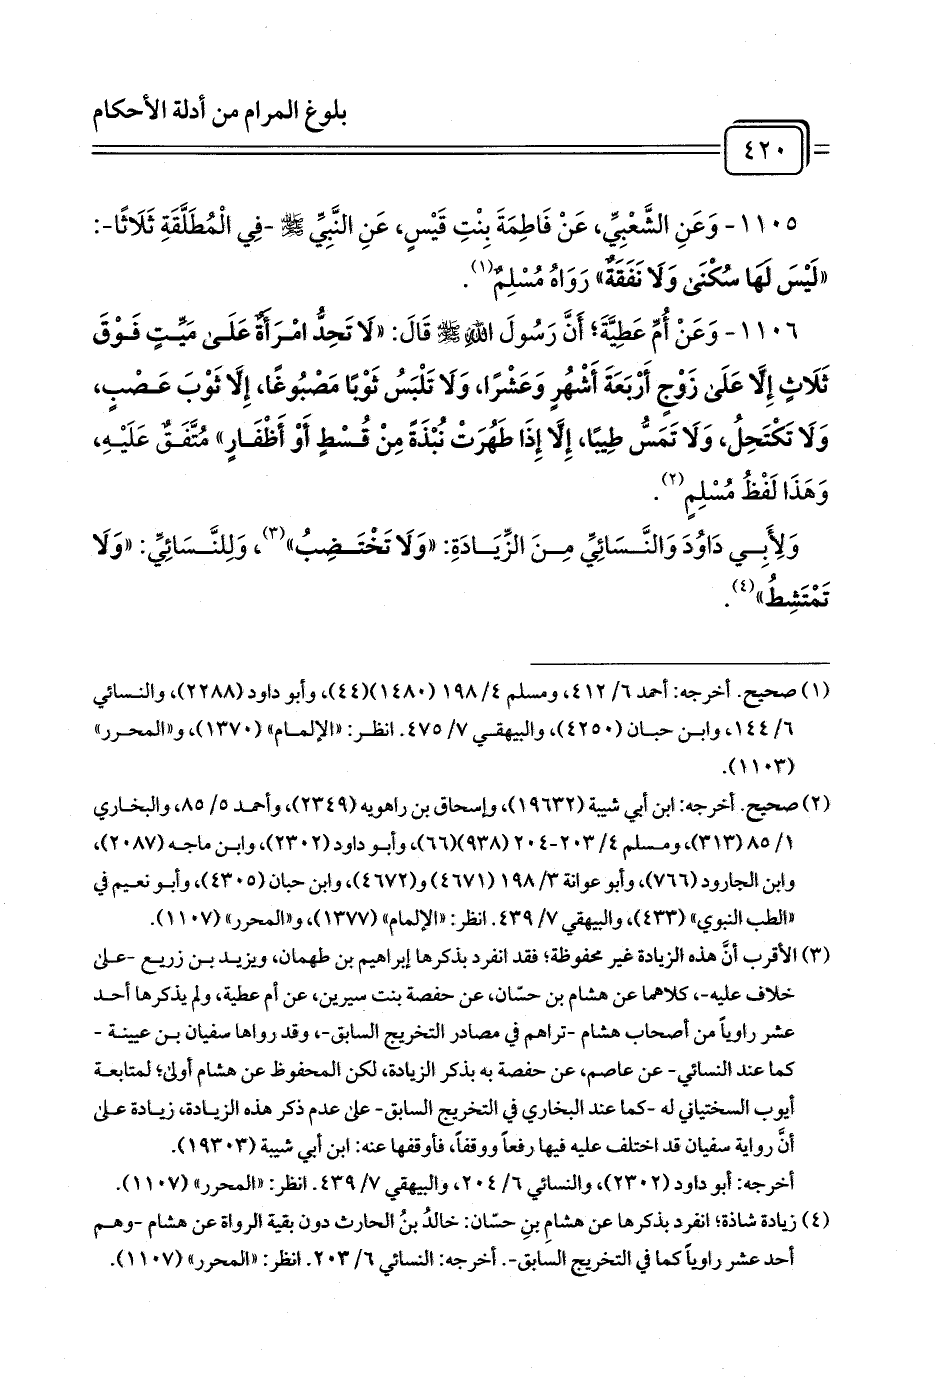 بلوغ المرام من أدلة الأحكام
٤٢٠
١١٠٥- وَعَنِ الشَّعْبِيِّ، عَنْ فَاطِمَةَ بِنْتِ قَيْسٍ، عَنِ النَّبِيِّ ﷺ -فِي الْمُطَلَّقَةِ ثَلَاثًا-:
«لَيْسَ لَهَا سُكْنَى وَلَا نَفَقَةٌ» رَوَاهُ مُسْلِمٌ(١).
١١٠٦- وَعَنْ أُمِّ عَطِيَّةَ؛ أَنَّ رَسُولَ اللهِ ﷺ قَالَ: «لَا تَحِدُّ امْرَأَةٌ عَلَى مَيِّتٍ فَوْقَ
ثَلَاثٍ إِلَّا عَلَى زَوْجٍ أَرْبَعَةَ أَشْهُرٍ وَعَشْرًا، وَلَا تَلْبَسُ ثَوْبًا مَصْبُوغًا، إِلَّا ثَوْبَ عَصْبٍ،
وَلَا تَكْتَحِلُ، وَلَا تَمَسُّ طِيبًا، إِلَّا إِذَا طَهُرَتْ نُبْذَةً مِنْ قُسْطٍ أَوْ أَظْفَارٍ» مُتَّفَقٌ عَلَيْهِ،
وَهَذَا لَفْظُ مُسْلِمٍ(٢).
وَلِأَبِي دَاوُدَ وَالنَّسَائِيِّ مِنَ الزِّيَادَةِ: «وَلَا تَخْتَضِبُ»(٣)، وَلِلنَّسَائِيِّ: «وَلَا
تَمْتَشِطُ»(٤).
(١) صحيح. أخرجه: أحمد ٦/ ٤١٢، ومسلم ٤/ ١٩٨ (١٤٨٠)(٤٤)، وأبو داود (٢٢٨٨)، والنسائي
٦/ ١٤٤، وابن حبان (٤٢٥٠)، والبيهقي ٧/ ٤٧٥. انظر: «الإلمام» (١٣٧٠)، و«المحرر»
(١١٠٣).
(٢) صحيح. أخرجه: ابن أبي شيبة (١٩٦٣٢)، وإسحاق بن راهويه (٢٣٤٩)، وأحمد ٥/ ٨٥، والبخاري
١/ ٨٥ (٣١٣)، ومسلم ٤/ ٢٠٣-٢٠٤ (٩٣٨)(٦٦)، وأبو داود (٢٣٠٢)، وابن ماجه (٢٠٨٧)،
وابن الجارود (٧٦٦)، وأبو عوانة ٣/ ١٩٨ (٤٦٧١) و(٤٦٧٢)، وابن حبان (٤٣٠٥)، وأبو نعيم في
«الطب النبوي» (٤٣٣)، والبيهقي ٧/ ٤٣٩. انظر: «الإلمام» (١٣٧٧)، و«المحرر» (١١٠٧).
(٣) الأقرب أنَّ هذه الزيادة غير محفوظة؛ فقد انفرد بذكرها إبراهيم بن طهمان، ويزيد بن زريع -على
خلاف عليه-، كلاهما عن هشام بن حسّان، عن حفصة بنت سيرين، عن أم عطية، ولم يذكرها أحد
عشر راوياً من أصحاب هشام -تراهم في مصادر التخريج السابق-، وقد رواها سفيان بن عيينة -
كما عند النسائي- عن عاصم، عن حفصة به بذكر الزيادة، لكن المحفوظ عن هشام أولى؛ لمتابعة
أيوب السختياني له -كما عند البخاري في التخريج السابق- على عدم ذكر هذه الزيادة، زيادة على
أنَّ رواية سفيان قد اختلف عليه فيها رفعاً ووقفاً، فأوقفها عنه: ابن أبي شيبة (١٩٣٠٣).
أخرجه: أبو داود (٢٣٠٢)، والنسائي ٦/ ٢٠٤، والبيهقي ٧/ ٤٣٩. انظر: «المحرر» (١١٠٧).
(٤) زيادة شاذة؛ انفرد بذكرها عن هشامِ بنِ حسّان: خالدُ بنُ الحارث دون بقية الرواة عن هشام -وهم
أحد عشر راوياً كما في التخريج السابق-. أخرجه: النسائي ٦/ ٢٠٣. انظر: «المحرر» (١١٠٧).